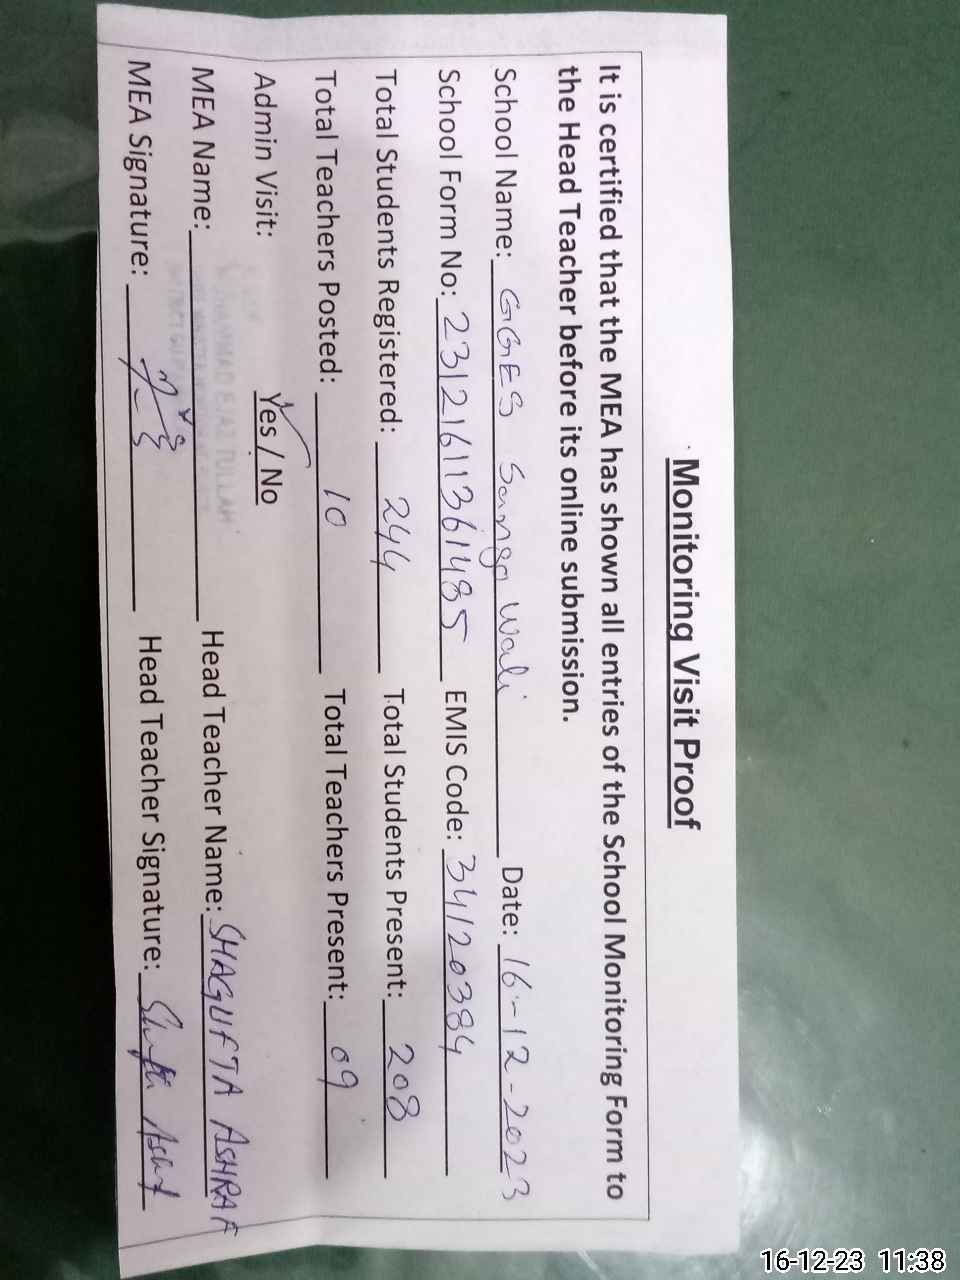 Monitoring Visit Proof
It is certified that the MEA has shown all entries of the School Monitoring Form to
the Head Teacher before its online submission.
School Name: GGES Sango Wali Date: 16-12-2023
School Form No: 23121611361485 EMIS Code: 34120384
Total Students Registered: 244 Total Students Present: 208
Total Teachers Posted: 10 Total Teachers Present: 09
Admin Visit: Yes / No
MEA Name: MUHAMMAD EJAZ Head Teacher Name: SHAGUFTA ASHRAF
MEA Signature: Head Teacher Signature:
16-12-23 11:38